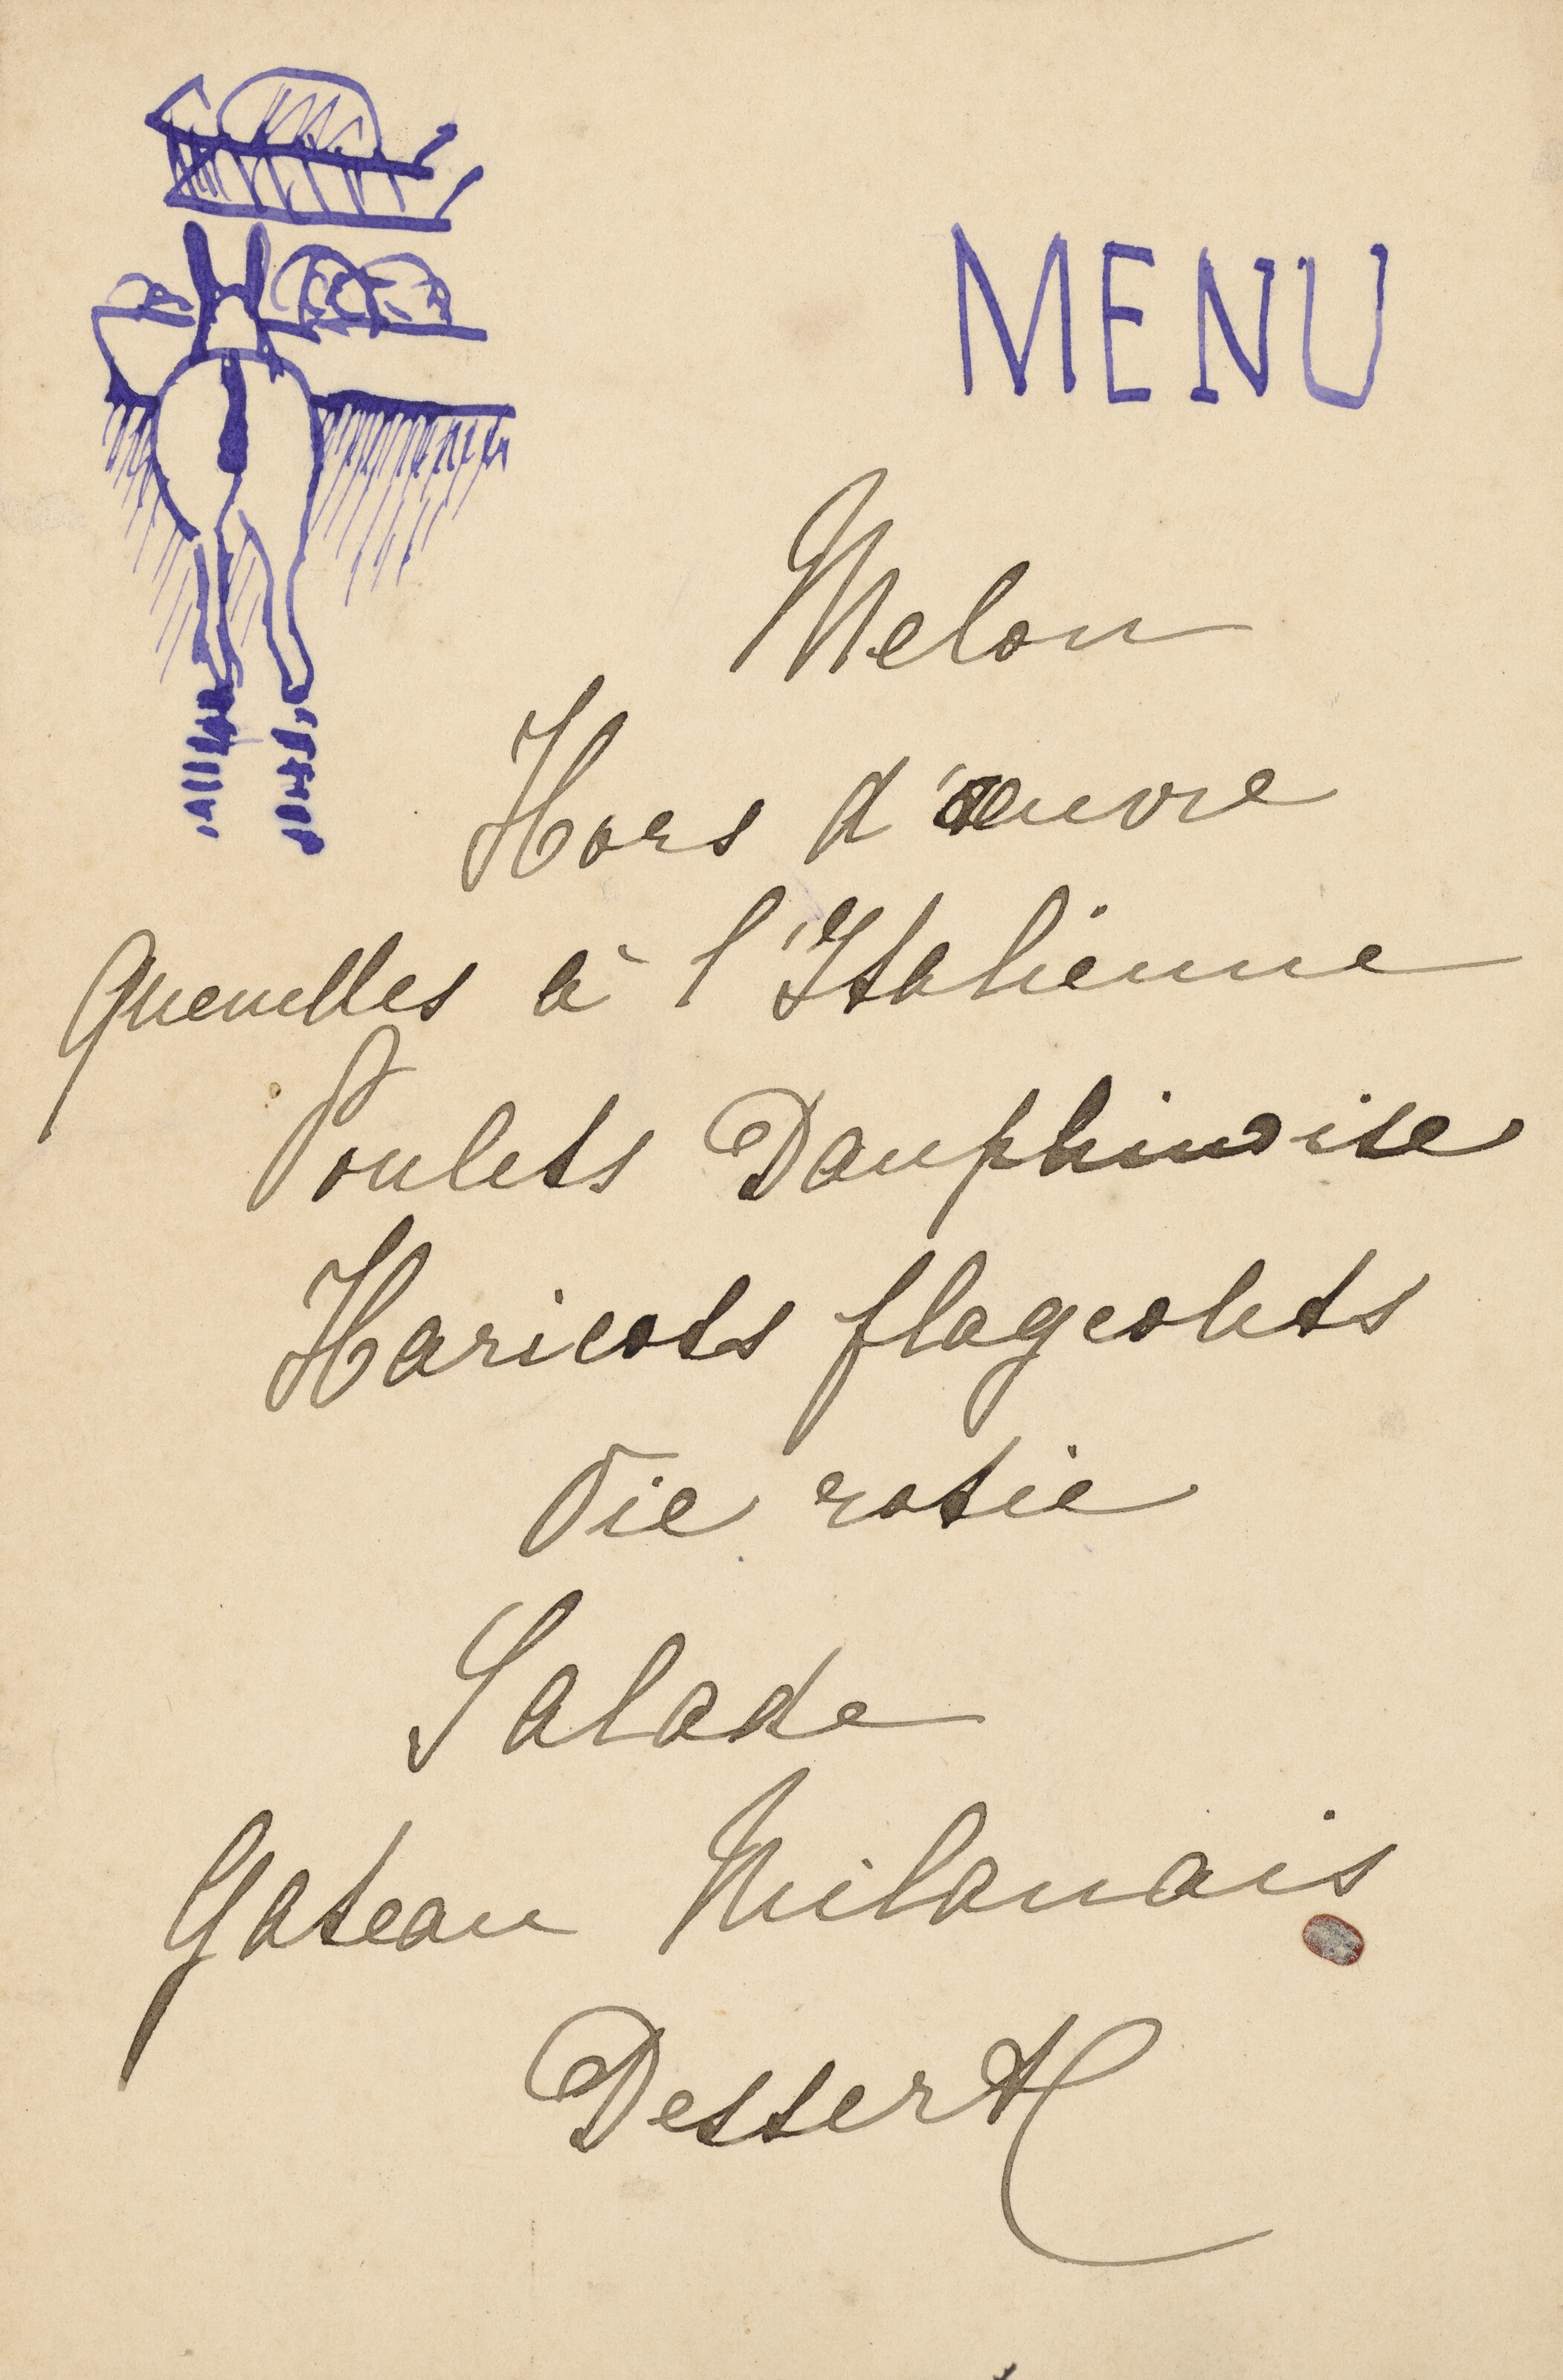 MENU
Melon
Hors d'œuvre
Quenelles à l'Italienne
Poulets Dauphinoise
Haricots flageolets
Oie rotie
Salade
Gateau Milanais
Dessert